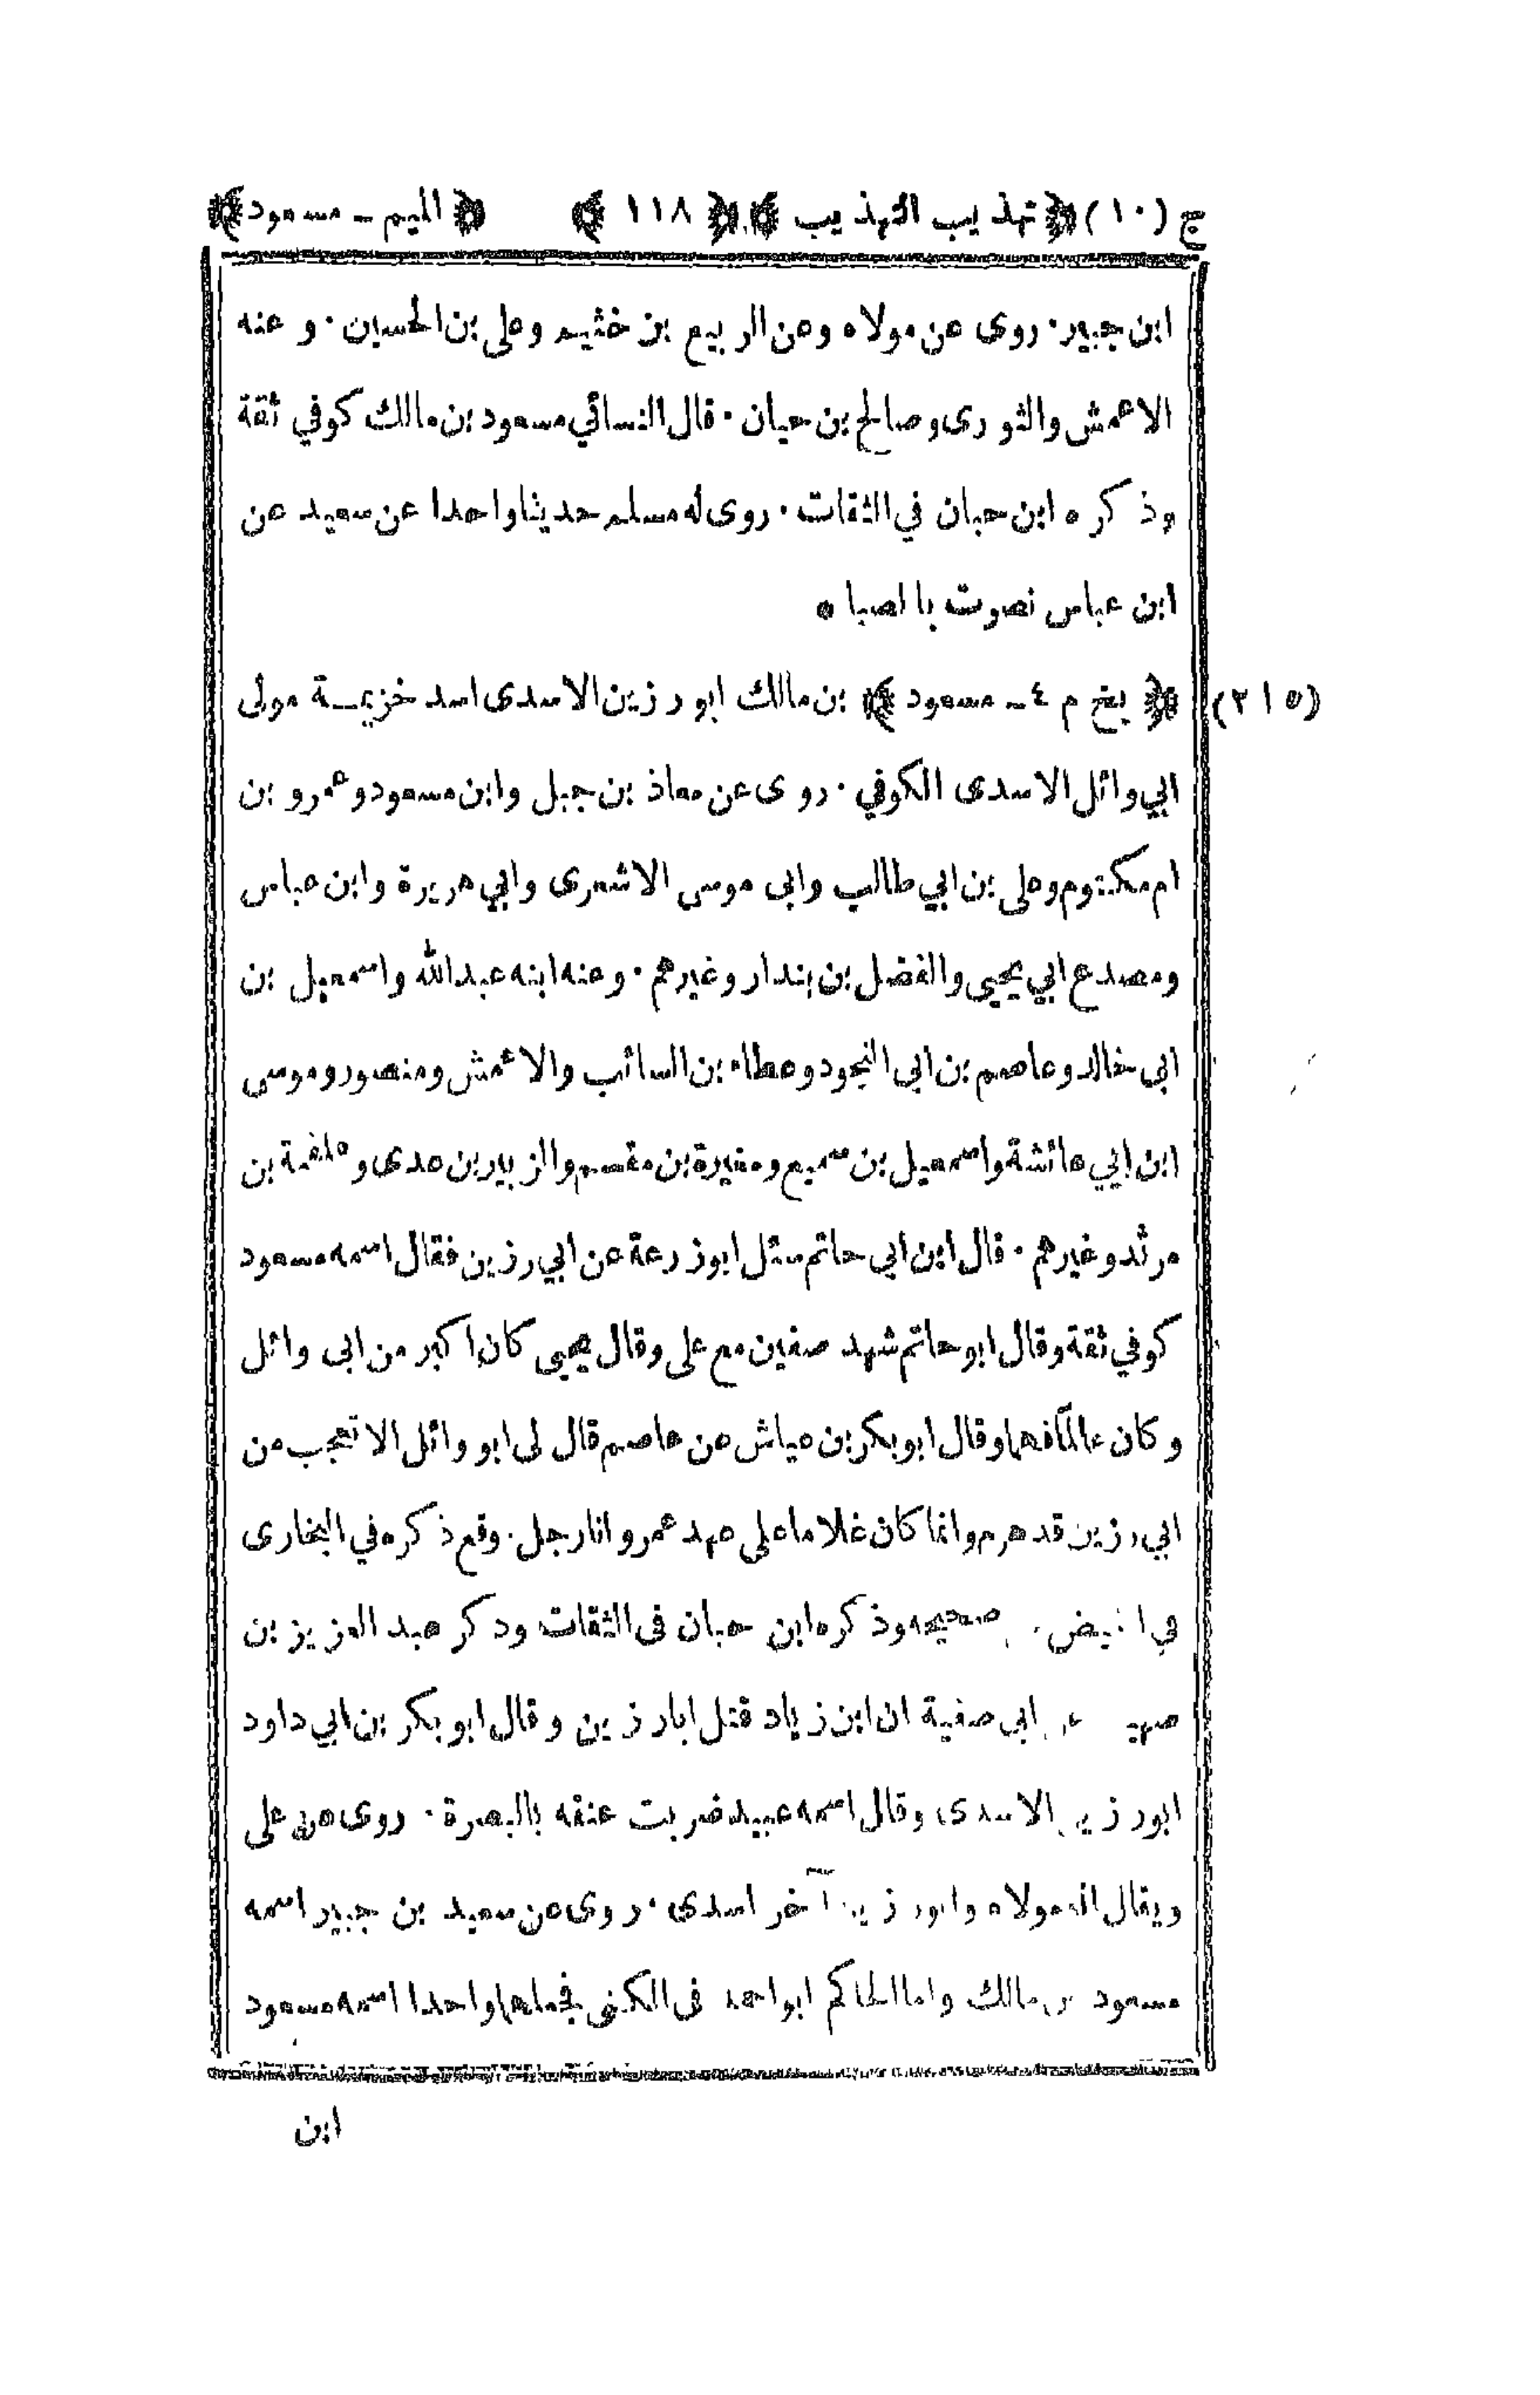 ج (١٠) ﴿تهذيب التهذيب﴾ ﴿١١٨﴾ ﴿الميم ـ مسعود﴾
ابن جبير. روى عن مولاه وعن الربيع بن خثيم وعلى بن الحسين. وعنه
الاعمش والثورى وصالح بن حيان. قال النسائي مسعود بن مالك كوفي ثقة
وذكره ابن حبان في الثقات. روى له مسلم حديثا واحدا عن سعيد عن
ابن عباس نصرت بالصبا ٥
(٢١٥) ﴿بخ م ٤ ـ مسعود﴾ بن مالك ابورزين الاسدى اسد خزيمـة مولى
ابي وائل الاسدى الكوفي. روى عن معاذ بن جبل وابن مسعود وعمرو بن
ام مكتوم وعلى بن ابي طالب وابى موسى الاشعرى وابي هريرة وابن عباس
ومصدع ابي يحيى والفضل بن بندار وغيرهم. وعنه ابنه عبدالله واسمعيل بن
ابى خالد وعاصم بن ابى النجود وعطاء بن السائب والاعمش ومنصور وموسى
ابن ابي عائشة واسمعيل بن سميع ومغيرة بن مقسم والزبير بن عدى وعلقمة بن
مرثد وغيرهم. قال ابن ابى حاتم سئل ابوزرعة عن ابي رزين فقال اسمه مسعود
كوفي ثقة وقال ابوحاتم شهد صفين مع على وقال يحيى كان اكبر من ابى وائل
وكان عالمًا فهما وقال ابوبكر بن عياش عن عاصم قال لى ابو وائل الا تعجب من
ابي رزين قد هرم وانما كان غلاما على عهد عمر وانا رجل. وقع ذكره في البخارى
في صحيحه وذكره ابن حبان فى الثقات وذكر عبد العزيز بن
ابى صفية ان ابن زياد قتل ابا رزين وقال ابوبكر بن ابي داود
ابورزين الاسدى وقال اسمه عبيد ضربت عنقه بالبصرة. روى عن على
ويقال انه مولاه وابورزين آخر اسدى. روى عن سعيد بن جبير اسمه
مسعود بن مالك واما الحاكم ابواحمد فى الكنى فجعلهما واحدا اسمه مسعود
ابن